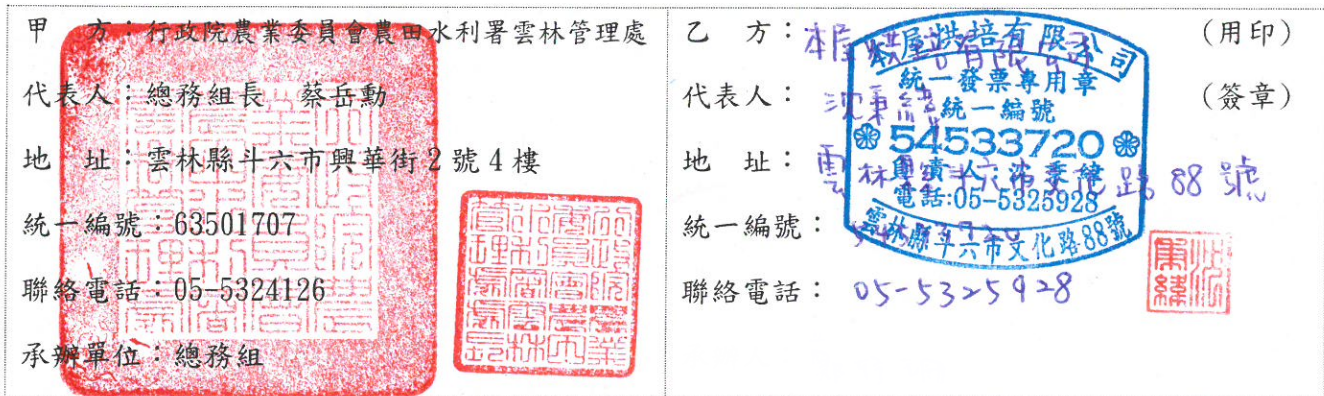 甲　方：行政院農業委員會農田水利署雲林管理處
代表人：總務組長　蔡岳勳
地　址：雲林縣斗六市興華街2號4樓
統一編號：63501707
聯絡電話：05-5324126
承辦單位：總務組
乙　方：本屋烘培有限公司　(用印)
代表人：沈秉緯　(簽章)
地　址：雲林縣斗六市文化路88號
統一編號：
聯絡電話：05-5325928
本屋烘培有限公司
統一發票專用章
統一編號
54533720
負責人:沈秉緯
電話:05-5325928
雲林縣斗六市文化路88號